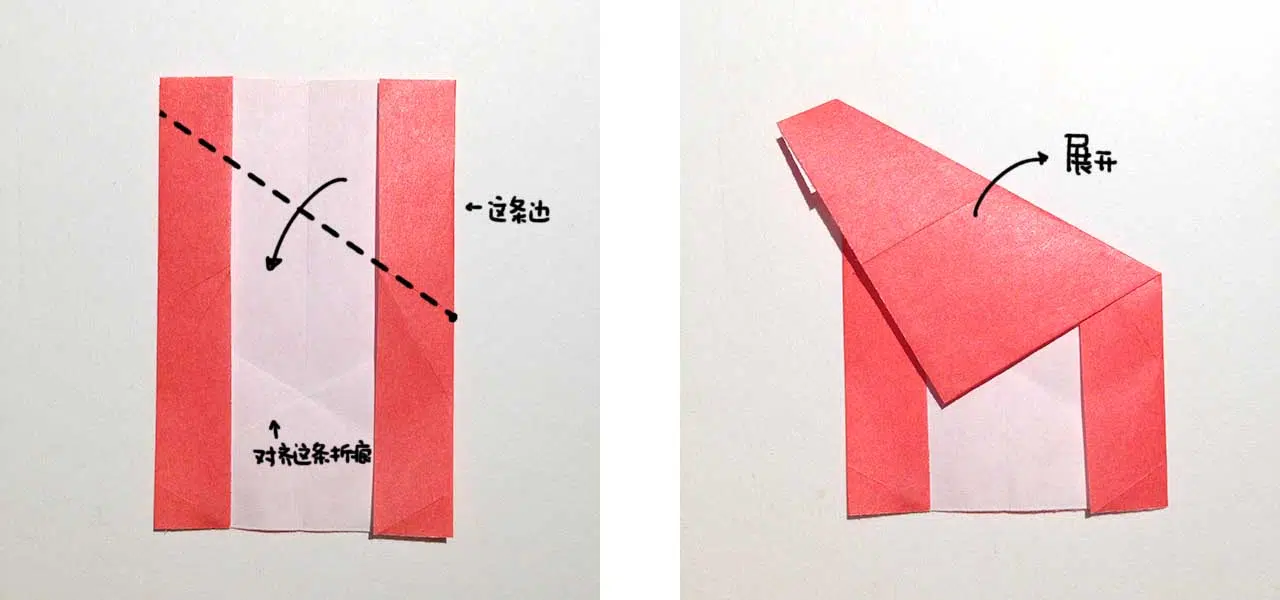 ←这条边
↑
对齐这条折痕
展开